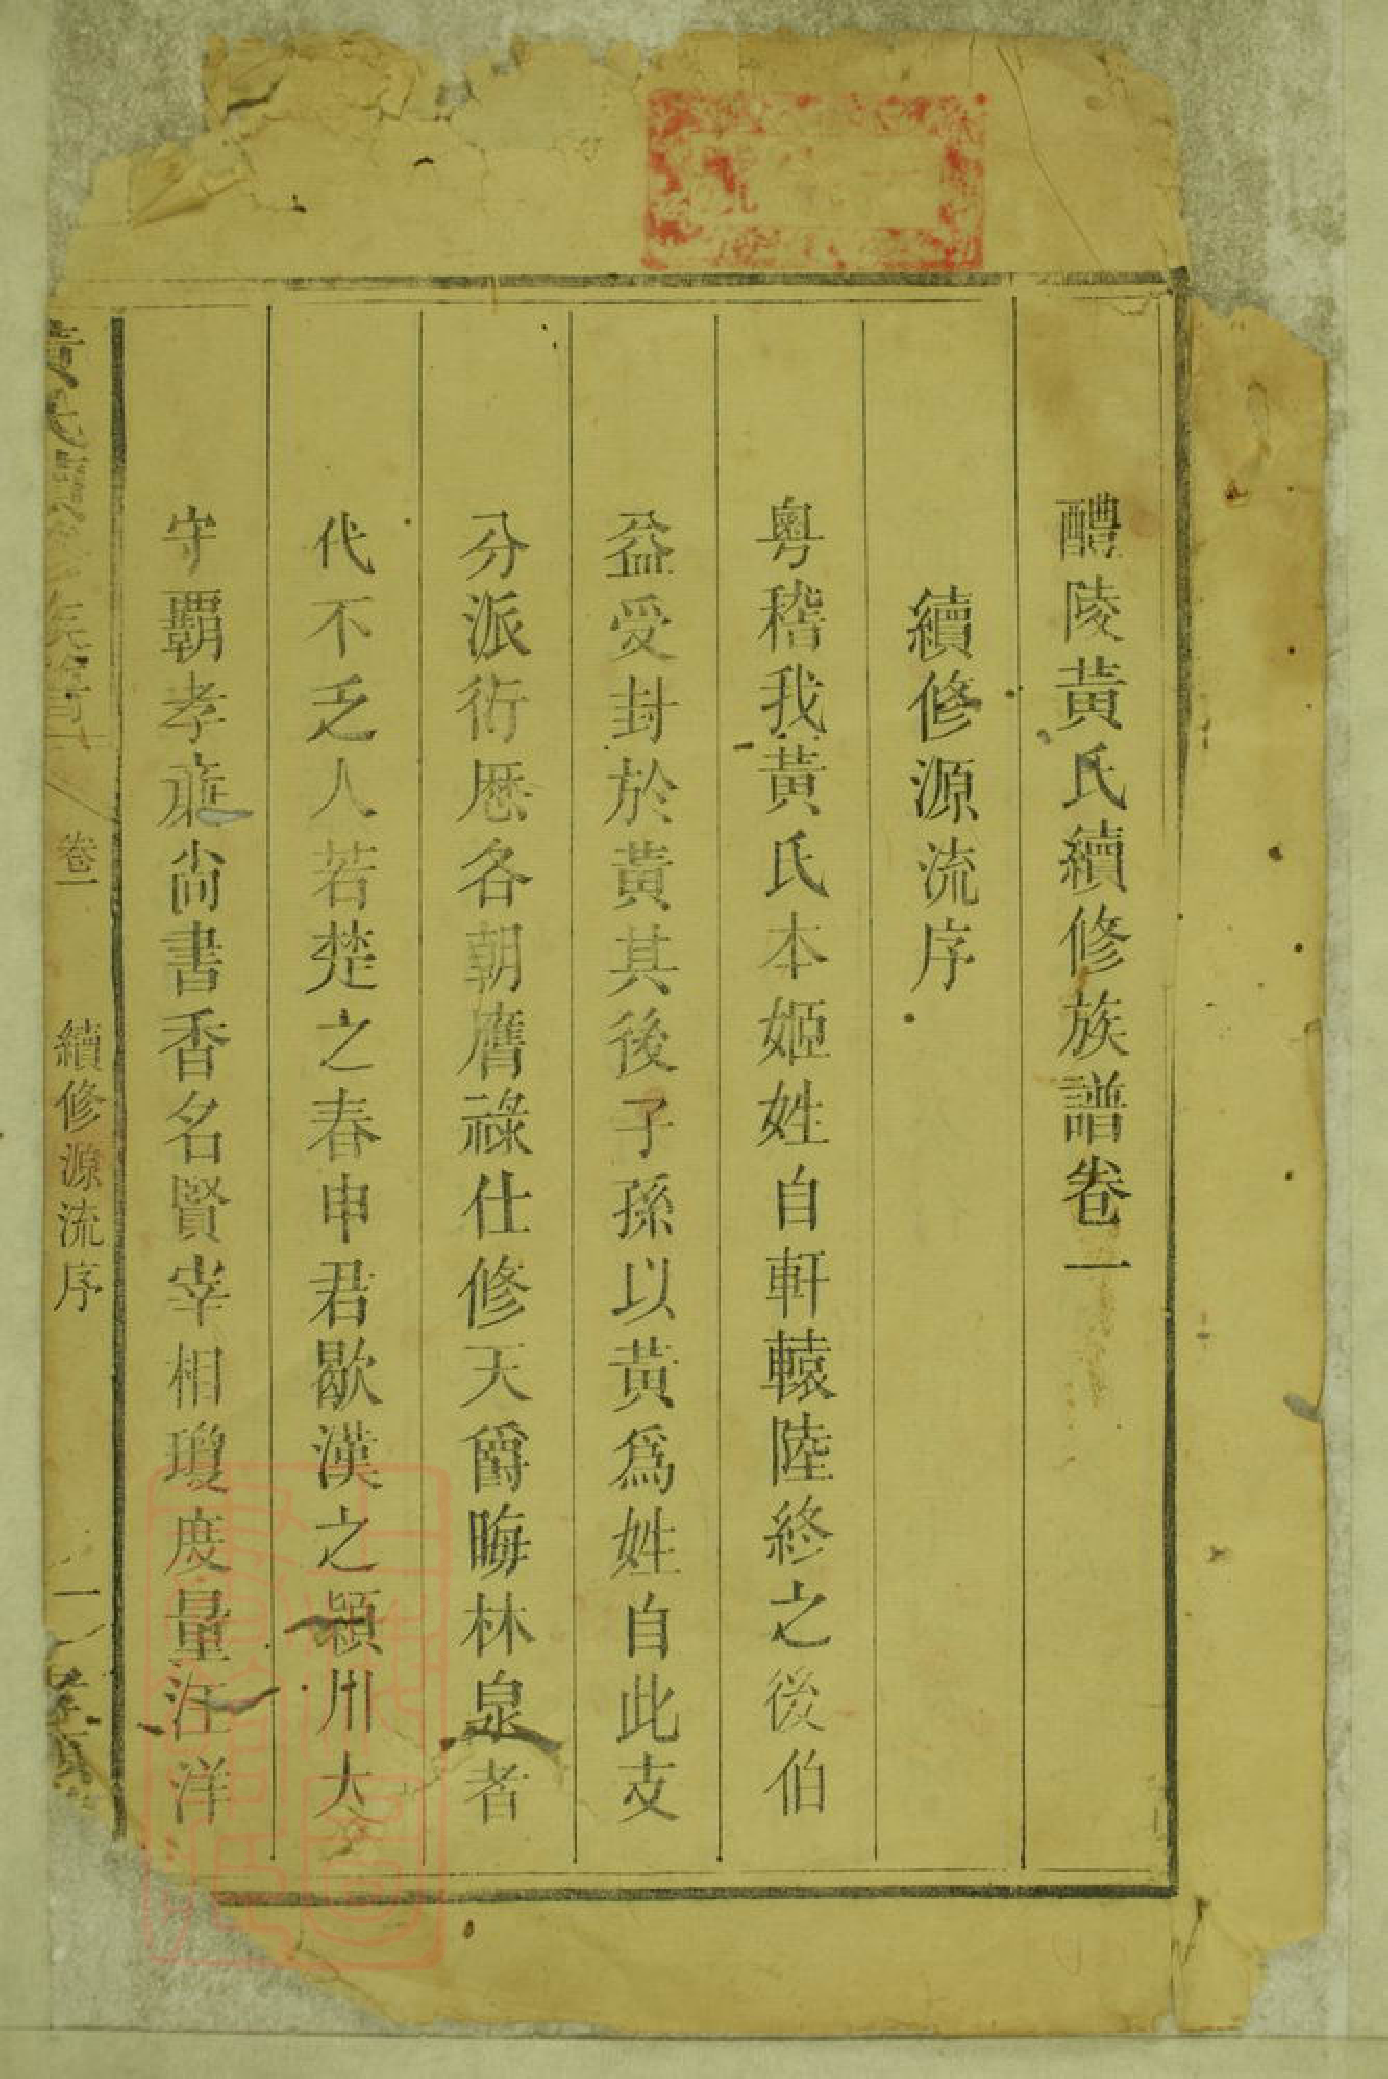 醴陵黃氏續修族譜卷一
續修源流序
粵稽我黃氏本姬姓自軒轅陸終之後伯
益受封於黃其後子孫以黃爲姓自此支
分派衍歷各朝膺祿仕修天爵晦林泉者
代不乏人若楚之春申君歇漢之潁川大
守覇孝㢘尙書香名賢宰相瓊度量汪洋
卷一
續修源流序
一